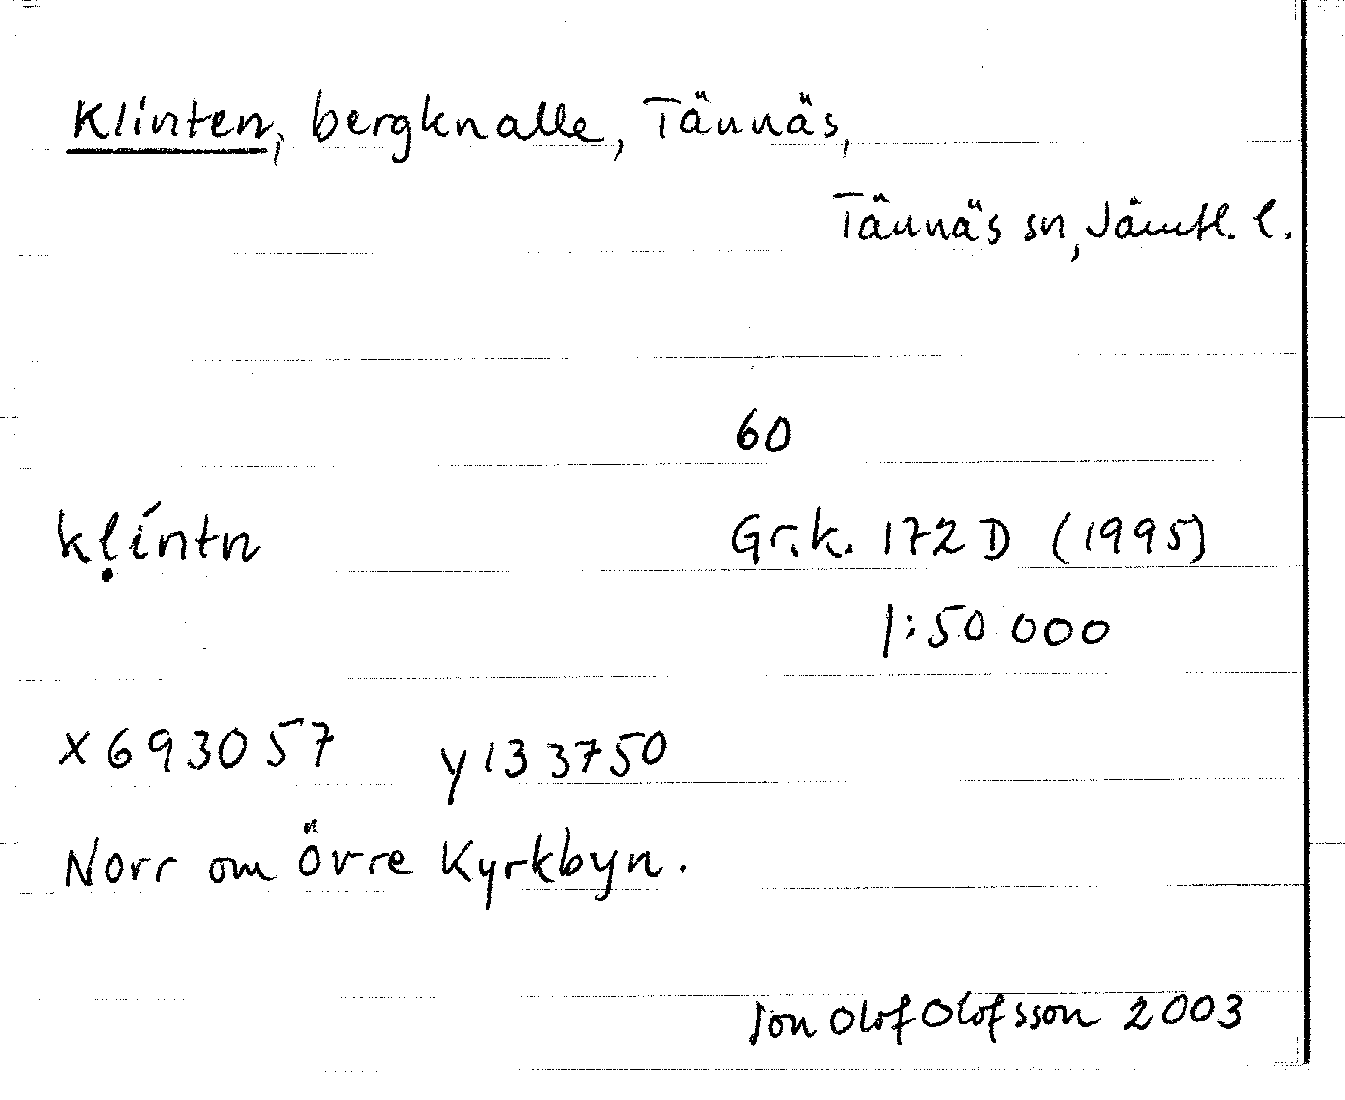 Klinten, bergknalle, Tännäs,
Tännäs sn, Jämtl. l.
60
kḷíntn Gr.k. 172 D (1995)
1:50 000
x 693057 y 133750
Norr om Övre Kyrkbyn.
Jon Olof Olofsson 2003